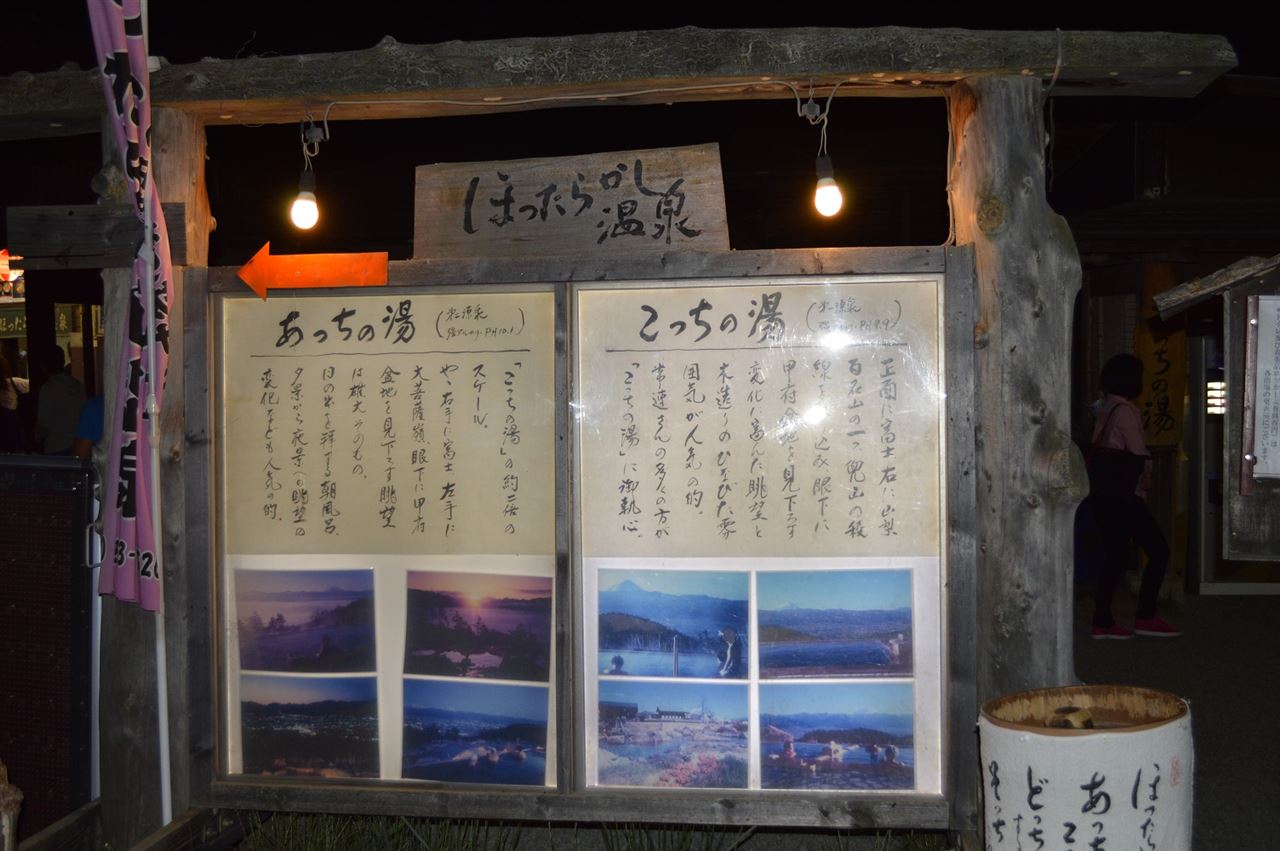 ほったらかし
温泉
あっちの湯
(第二源泉
強アルカリ・PH10.1)
「こっちの湯」の約二倍の
スケール。
やゝ右手に富士 左手に
大菩薩嶺、眼下に甲府
盆地を見下ろす眺望
は雄大そのもの。
日の出を拝する朝風呂、
夕景から夜景への眺望の
変化なども人気の的。
こっちの湯
(第一源泉
強アルカリ・PH9.9)
正面に富士 右に山梨
百名山の一つ 兜山の稜
線を
込み 眼下に
甲府盆地を見下ろす
変化に富んだ眺望と
木造りのひなびた雰
囲気が人気の的。
常連さんの多くの方が
「こっちの湯」に御執心。
ちの湯
ほったら
あっち
どっち
そっち